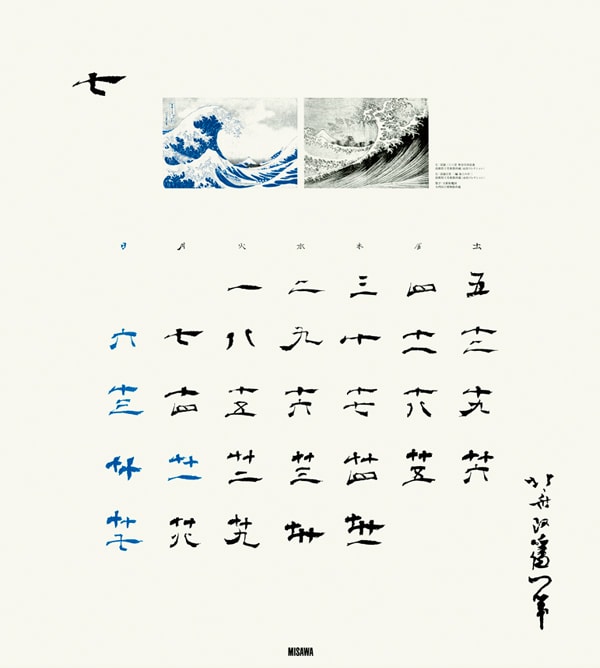 七
日 月 火 水 木 金 土
一 二 三 四 五
六 七 八 九 十 十一 十二
十三 十四 十五 十六 十七 十八 十九
廿 廿一 廿二 廿三 廿四 廿五 廿六
廿七 廿八 廿九 卅 卅一
MISAWA